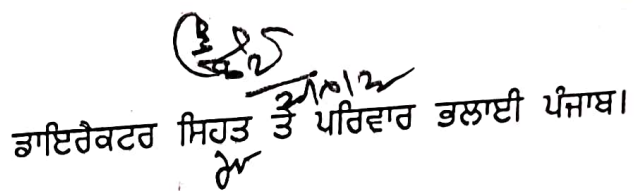 ਡਾਇਰੈਕਟਰ ਸਿਹਤ ਤੇ ਪਰਿਵਾਰ ਭਲਾਈ ਪੰਜਾਬ।